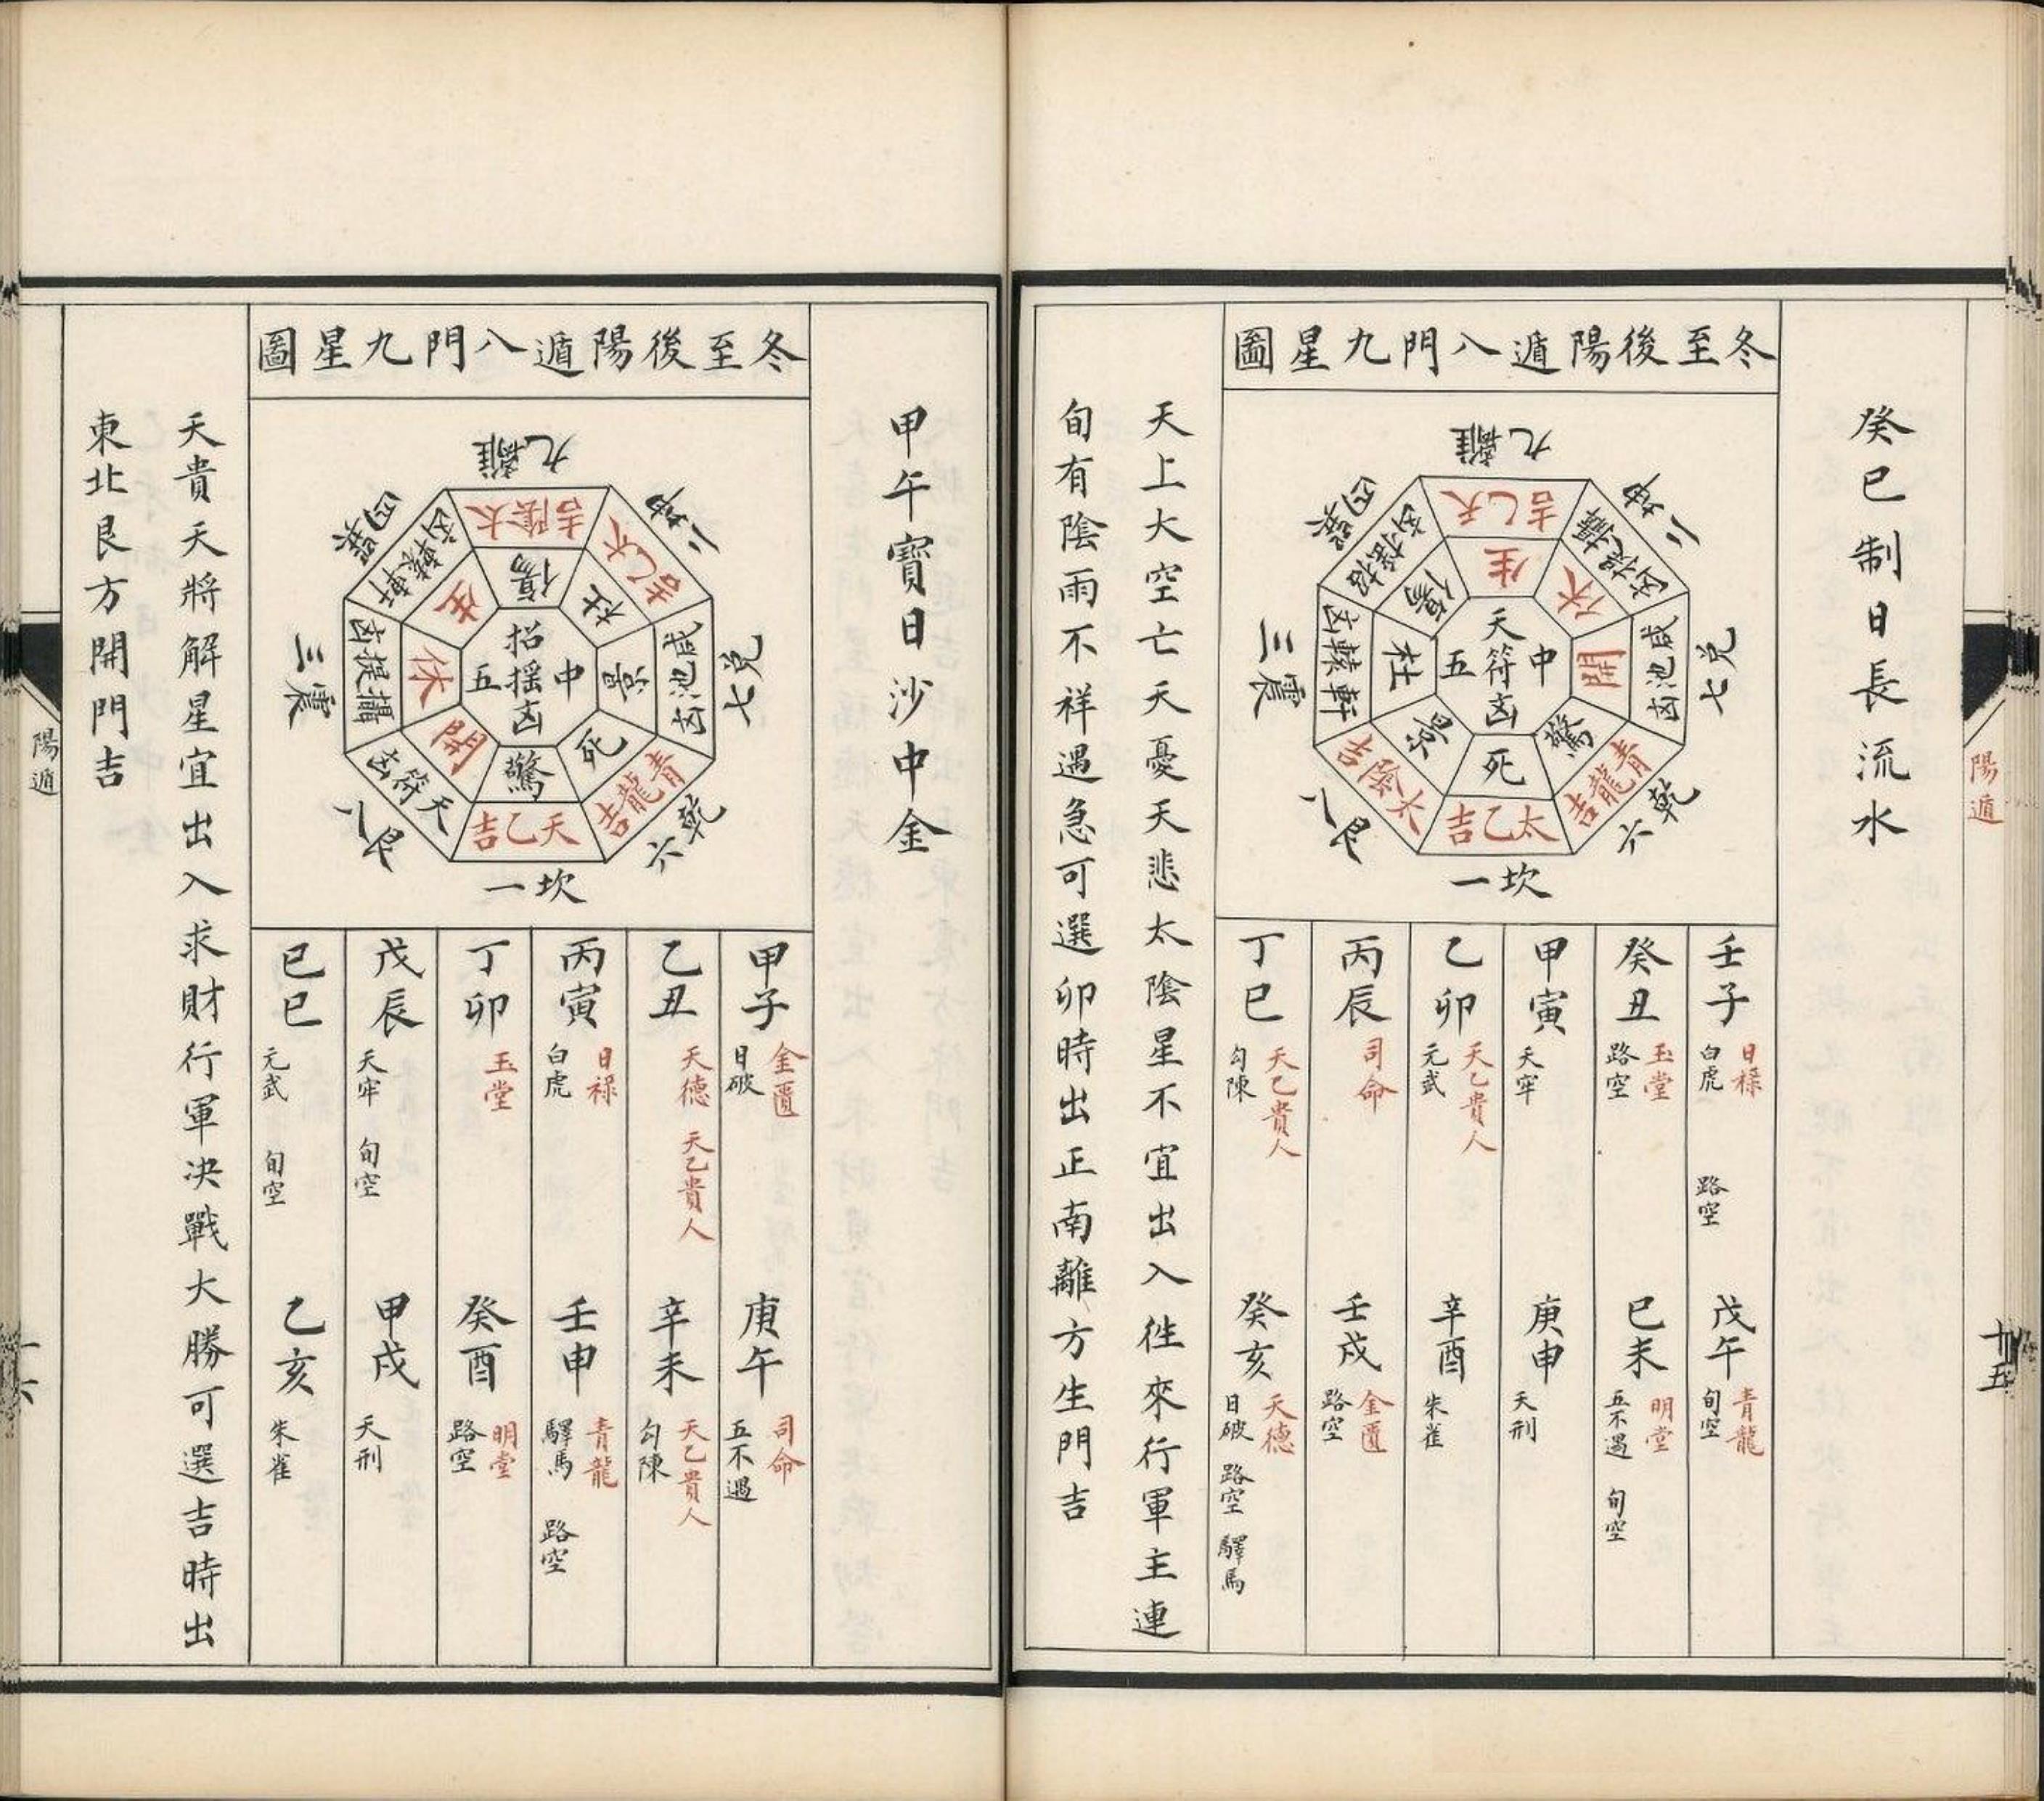 陽遁
十五
癸巳制日長流水
冬至後陽遁八門九星圖
九離
二坤
七兌
六乾
一坎
八艮
三震
四巽
天乙吉
攝提凶
咸池凶
青龍吉
太乙吉
太陰吉
軒轅凶
招搖凶
生
休
開
驚
死
景
杜
傷
中
天符凶
五
壬子 日祿 白虎 路空
戊午 青龍 旬空
癸丑 玉堂 路空
巳未 明堂 五不遇 旬空
甲寅 天牢
庚申 天刑
乙卯 天乙貴人 元武
辛酉 朱雀
丙辰 司命
壬戌 金匱 路空
丁巳 天乙貴人 勾陳
癸亥 天德 日破 路空 驛馬
天上大空亡天憂天悲太陰星不宜出入徃來行軍主連
旬有陰雨不祥遇急可選卯時出正南離方生門吉
甲午寳日沙中金
冬至後陽遁八門九星圖
九離
二坤
七兌
六乾
一坎
八艮
三震
四巽
太陰吉
太乙吉
咸池凶
青龍吉
天乙吉
天符凶
攝提凶
軒轅凶
傷
杜
景
死
驚
開
休
生
中
招搖凶
五
甲子 金匱 日破
庚午 司命 五不遇
乙丑 天德 天乙貴人
辛未 天乙貴人 勾陳
丙寅 日祿 白虎
壬申 青龍 驛馬 路空
丁卯 玉堂
癸酉 明堂 路空
戊辰 天牢 旬空
甲戌 天刑
巳巳 元武 旬空
乙亥 朱雀
天貴天將解星宜出入求財行軍決戰大勝可選吉時出
東北艮方開門吉
陽遁
十六